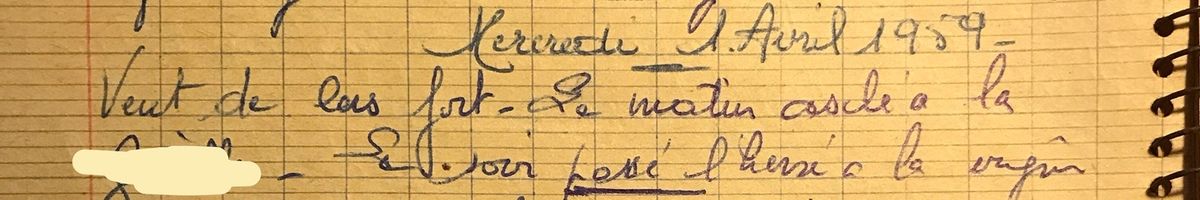 Mercredi 1. Avril 1959 -
Vent de bas fort - Le matin asclé a la
- Le soir passé l'hersé a la